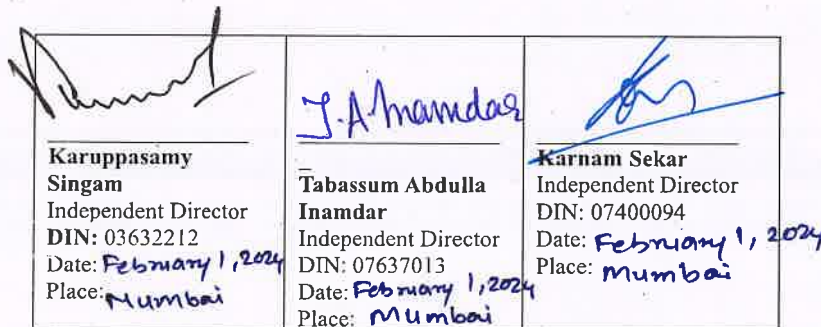 Karuppasamy
Singam
Independent Director
DIN: 03632212
Date: February 1, 2024
Place: Mumbai
T.A. Inamdar
Tabassum Abdulla
Inamdar
Independent Director
DIN: 07637013
Date: February 1, 2024
Place: Mumbai
Karnam Sekar
Independent Director
DIN: 07400094
Date: February 1, 2024
Place: Mumbai